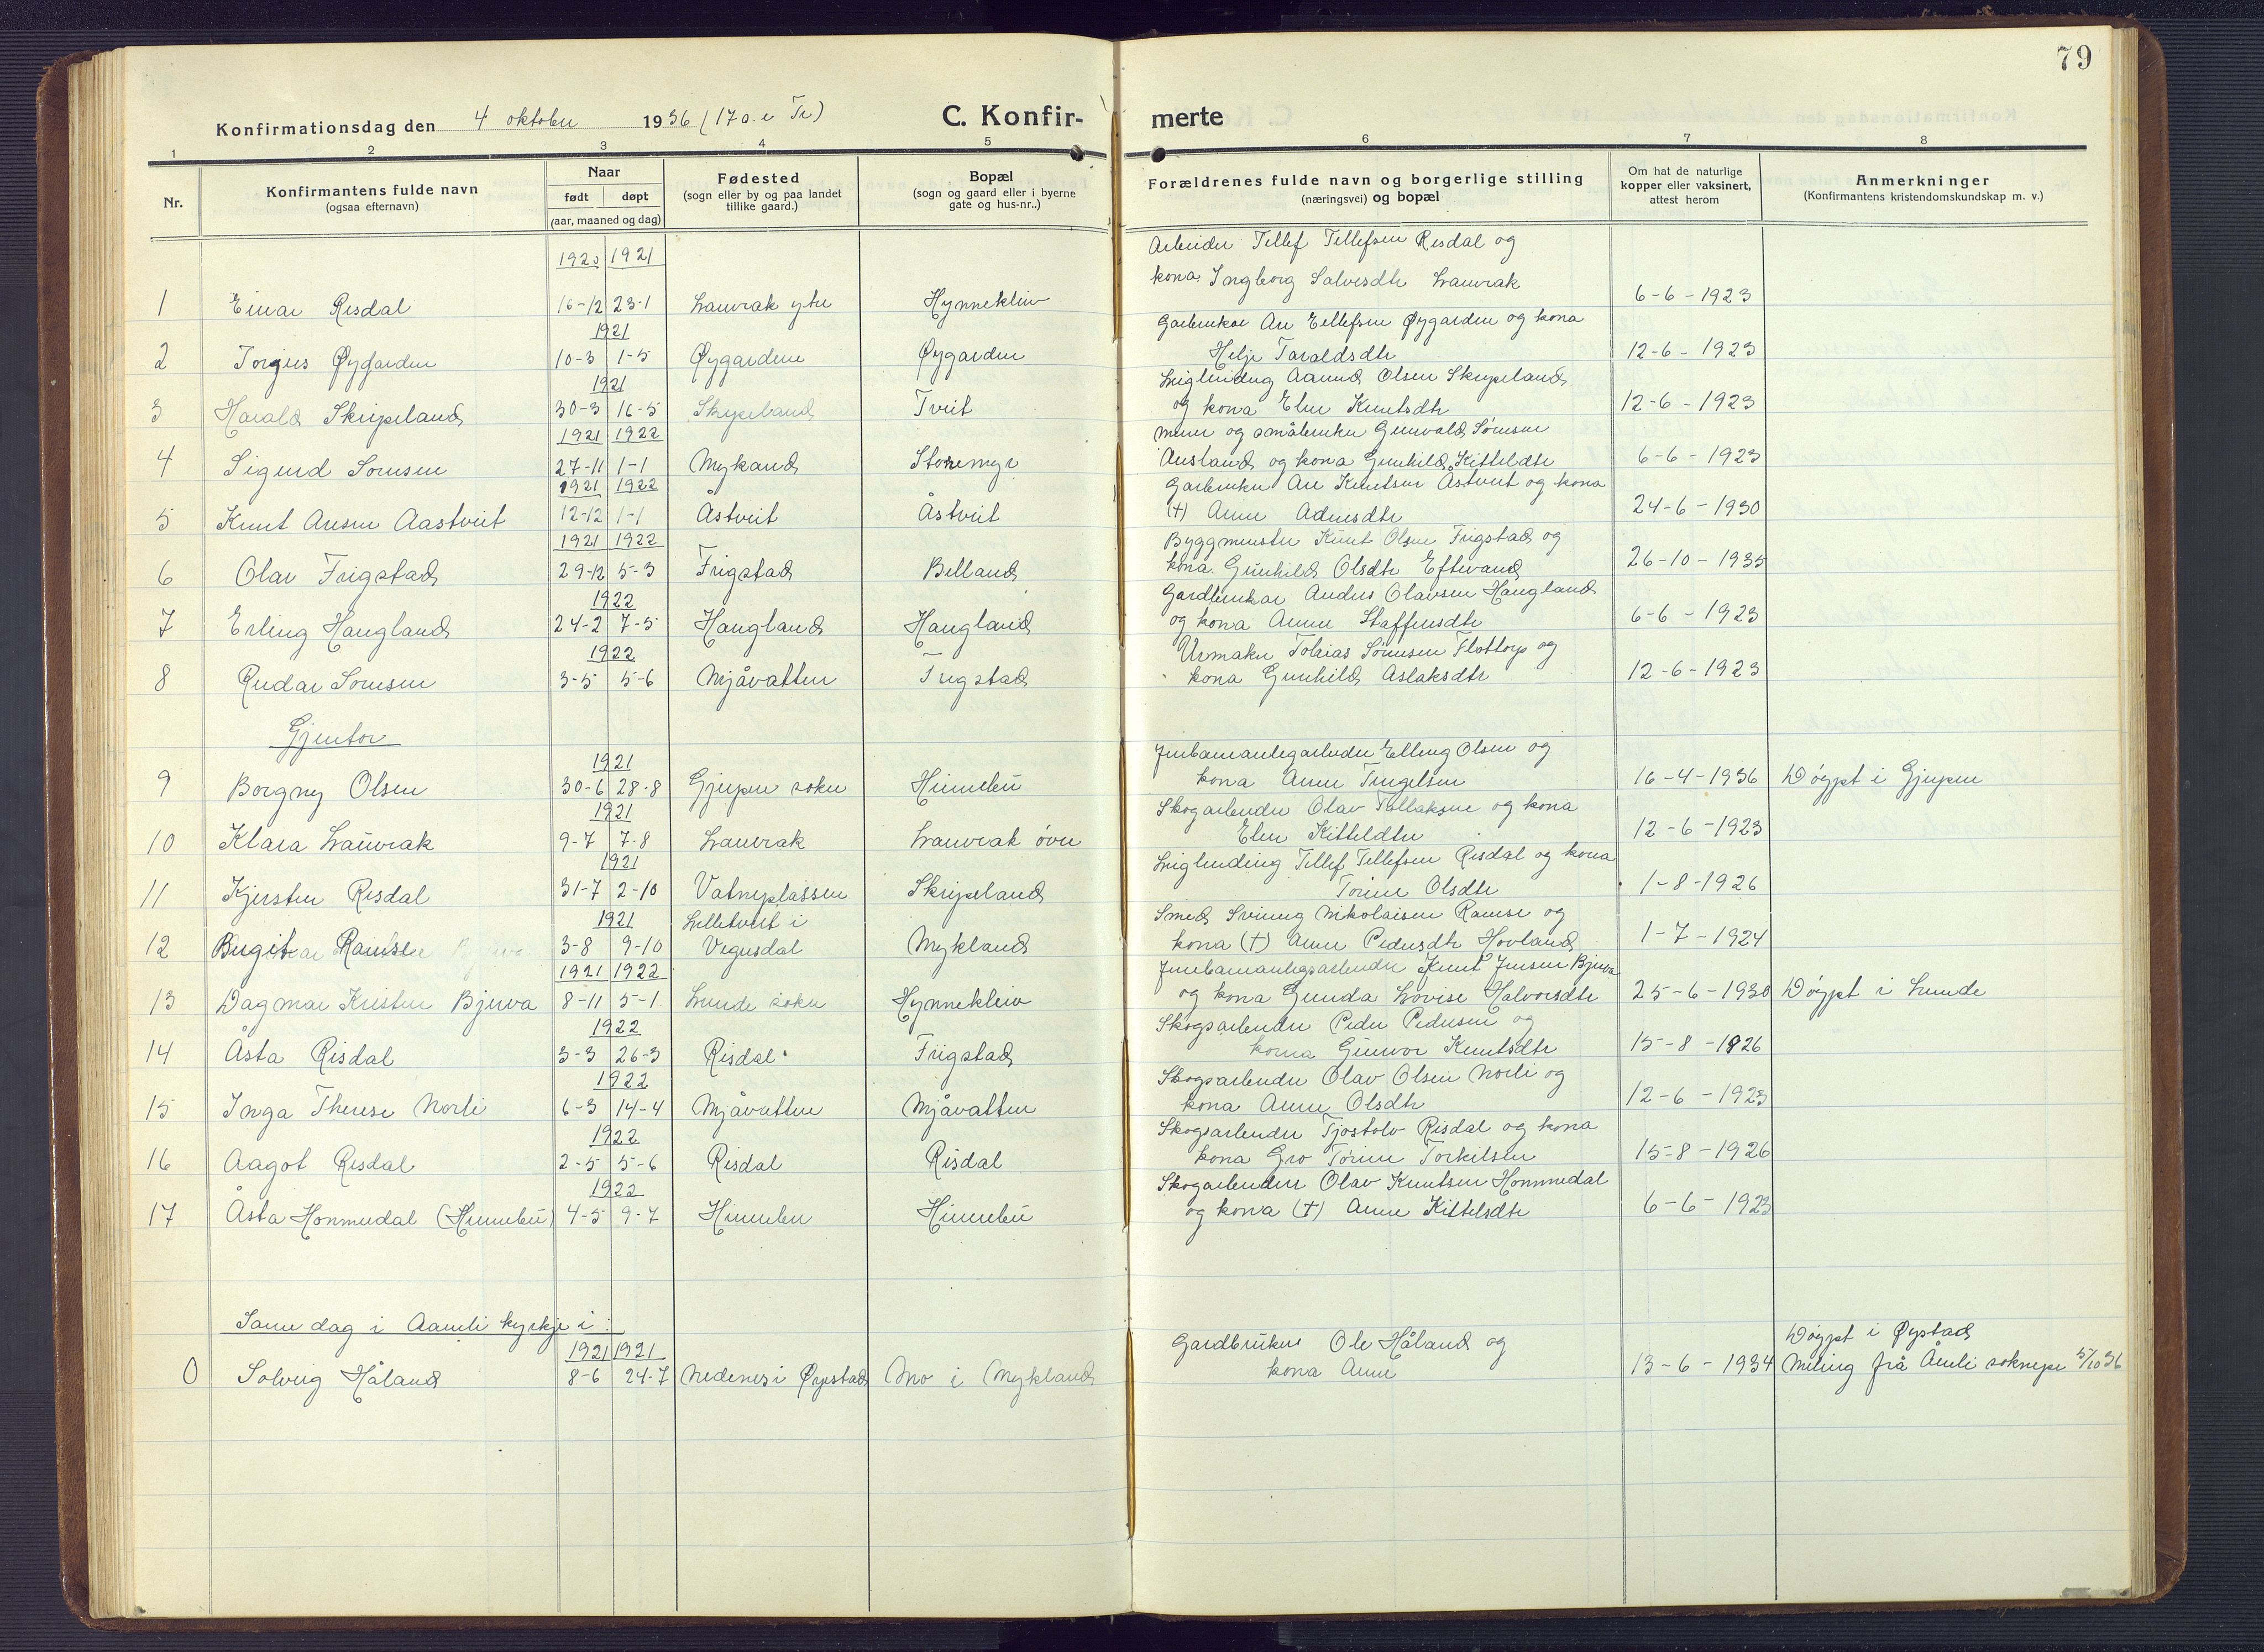 79
Konfirmationsdag den 4 oktober 1936 (17 s. e Tr) C. Konfir-
merte
1 2 3 4 5 6 7 8
Nr.
Konfirmantens fulde navn
(ogsaa efternavn)
Naar
født døpt
(aar, maaned og dag)
Fødested
(sogn eller by og paa landet
tillike gaard.)
Bopæl
(sogn og gaard eller i byerne
gate og hus-nr..)
Forældrenes fulde navn og borgerlige stilling
(næringsvei) og bopæl
Om hat de naturlige
kopper eller vaksinert,
attest herom
Anmerkninger
(Konfirmantens kristendomskundskap m. v.)
1920 1921 Arbeider Tellef Tellefsen Risdal og
kona Ingborg Salvesdtr Laurak
1 Einar Risdal 16-12 23-1 Laurak ytre Hynnekleiv 6-6-1923
1921 Garbrukar Are Eellefsen Øygarden og kona
2 Torgus Øygarden 10-3 1-5 Øygardene Øygarden Helje Taraldsdtr 12-6-1923
1921 Leiglending Aanund Olsen Skripeland
3 Harald Skripeland 30-3 16-5 Skripeland Tveit og kona Elen Knutsdtr 12-6-1923
1921 1922 Murer og småbruker Gunvald Sørensen
4 Sigurd Sørensen 27-11 1-1 Mykand Storemyr Ausland og kona Gunhild Kitteldtr 6-6-1923
1921 1922 Garbruker Are Knutsen Åstveit og kona
5 Knut Aresen Aastveit 12-12 1-1 Åstveit Åstveit (†) Anne Adnesdtr 24-6-1930
1921 1922 Byggmeister Knut Olsen Frigstad og
6 Olav Frigstad 29-12 5-3 Frigstad Belland kona Gunhild Olsdtr Eftevand 26-10-1935
1922 Gardbrukar Anders Olavsen Haugland
7 Erling Haugland 24-2 7-5 Haugland Haugland og kona Anne Staffensdtr 6-6-1923
1922 Urmaker Tobias Sørensen Flottorp og
8 Reidar Sørensen 3-5 5-6 Mjåvatten Frigstad kona Gunhild Aslaksdtr 12-6-1923
Gjentor
1921 Jernbaneanlegarbeider Elling Olsen og
9 Borgny Olsen 30-6 28-8 Gjerpen sokn Himelbu kona Anne Tingelsen 16-4-1936 Døypt i Gjerpen
1921 Skogarbeider Olav Tellaksen og kona
10 Klara Laurak 9-7 7-8 Laurak Laurak øvre Elen Kitteldtr 12-6-1923
1921 Leiglending Tellef Tellefsen Risdal og kona
11 Kjersten Risdal 31-7 2-10 Vatneplassen Skripeland Torine Olsdtr 1-8-1926
1921 Lilletveit i Smed Sveinung Nikolaisen Ramse og
12 Birgit Ramse 3-8 9-10 Vegusdal Mykland kona (†) Anne Pedersdtr Hovland 1-7-1924
1921 1922 Jernbaneanlegsarbeider Knut Jensen Bjerva
13 Dagmar Kristen Bjerva 8-11 5-1 Lunde sokn Hynnekleiv og kona Gunda Lovise Halvorsdtr 25-6-1930 Døypt i Lunde
1922 Skogsarbeider Peder Pedersen og
14 Åsta Risdal 3-3 26-3 Risdal Frigstad kona Gunvor Knutsdtr 15-8-1926
1922 Skogsarbeider Olav Olsen Norli og
15 Inga Therese Norli 6-3 14-4 Mjåvatten Mjåvatten kona Anne Olsdtr 12-6-1923
1922 Skogsarbeider Tjostolv Risdal og kona
16 Aagot Risdal 2-5 5-6 Risdal Risdal kona Gro Torine Torkilsen 15-8-1926
1922 Skogarbeider Olav Knutsen Hommedal
17 Åsta Hommedal (Himelbu) 4-5 9-7 Himelbu Himelbu og kona (†) Anne Kittelsdtr 6-6-1923
Same dag i Aamli kyrkje i:
1921 1921 Gardbruker Ole Håland og Døypt i Øyestad
0 Solveig Håland 8-6 24-7 Nedenes i Øyestad Mo i Mykland kona Anne 13-6-1934 Melding frå Åmli sokneprest 5/10 36